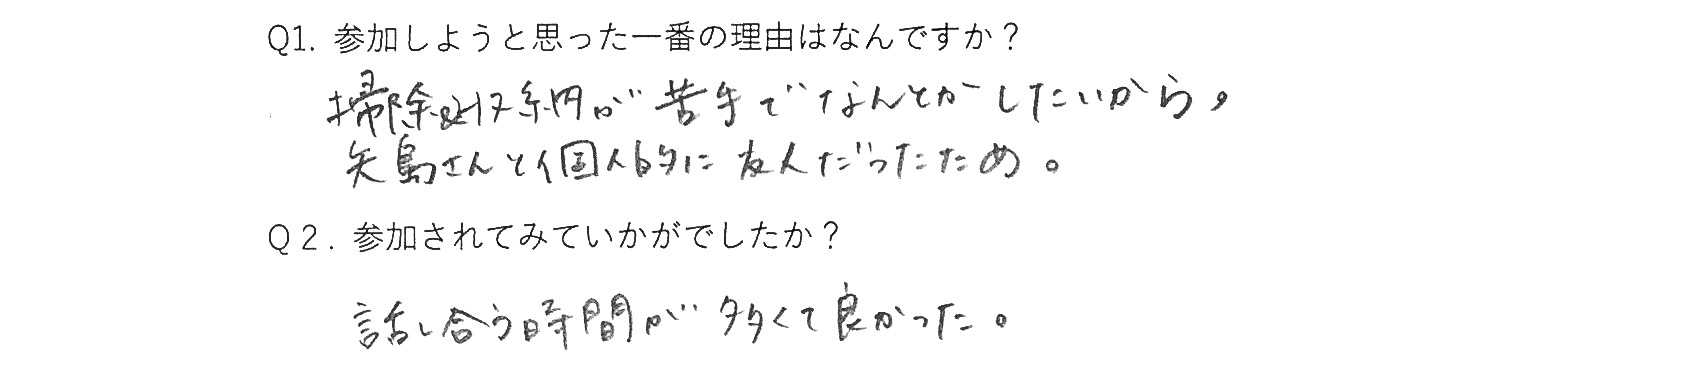 Q1. 参加しようと思った一番の理由はなんですか？
掃除&収納が苦手でなんとかしたいから，
矢島さんと個人的に友人だったため。
Q２. 参加されてみていかがでしたか？
話し合う時間が多くて良かった。